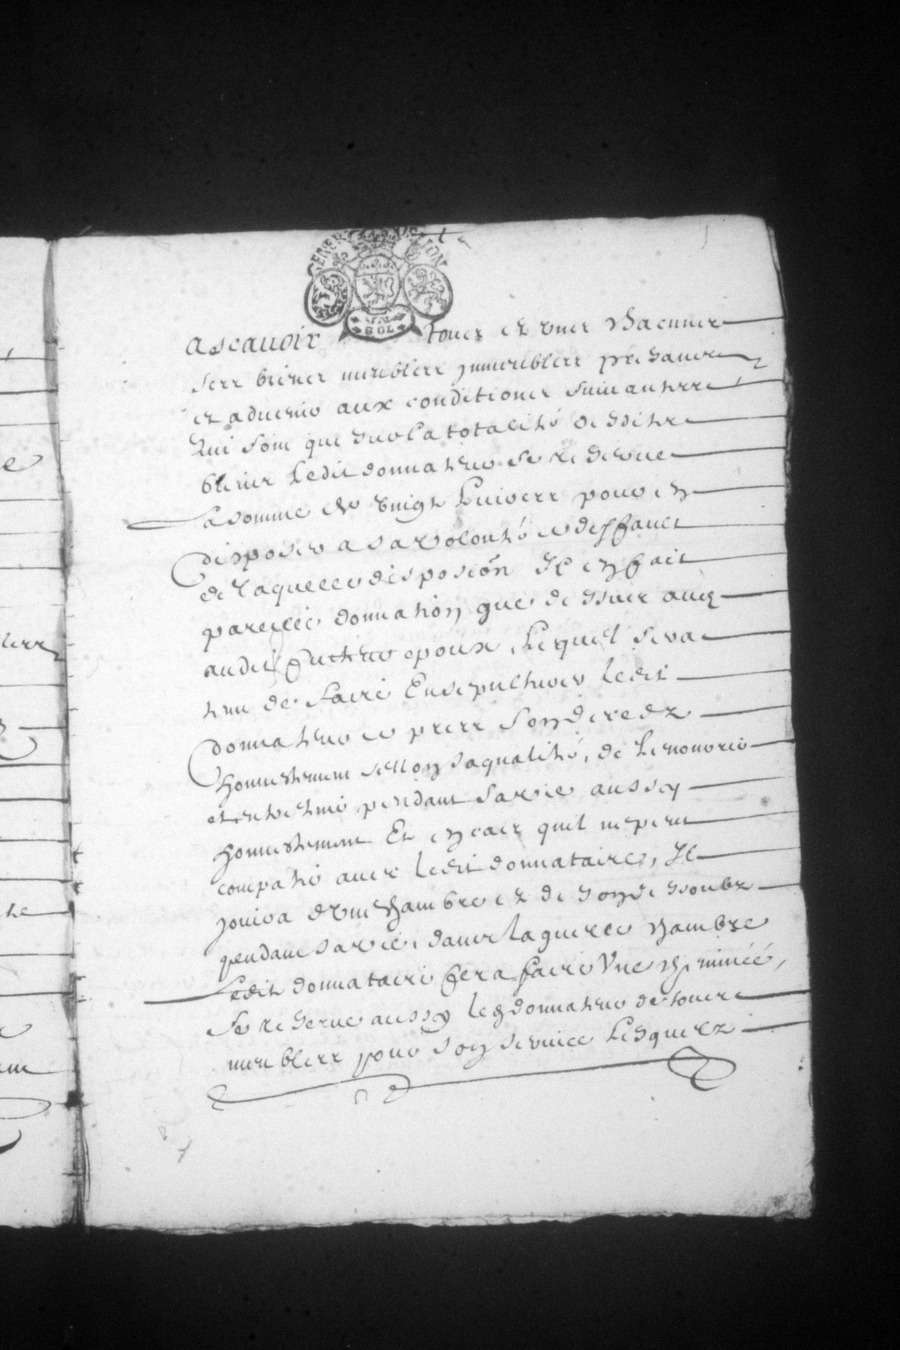 ascauoir tous et vngs chacungs
sers biens meubles jmmeubles presans
et aduenir aux conditions suiuantes
qui sont que sur la totalité desdits
biens ledit donnateur se reserue
la somme de vingt liures pour en
disposer a sa volonté et deffaut
de laquelle disposion Il en fait
pareille donnation que dessus aueq
audit futur epoux lequel sera
tenu de faire Ensepulturer ledit
donnateur et pres son deredz
honnestement sellon sa qualité, de le nourir
et entretenir pendant sa vie aussy
honnestement Et en cas quil ne peut
compatir auec ledit donnataire, Il
jouira dvne chambre et de
pendant sa vie, dans laquelle chambre
ledit donnataire fera faire Vne cheminéé,
se reserue aussy led donnateur de tous
meubles pour son seruice lesquelz